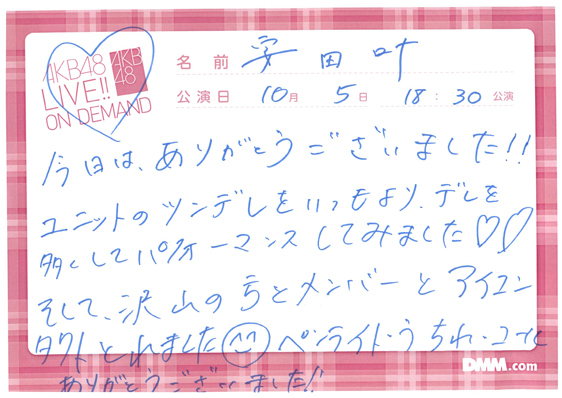 AKB48
LIVE!!
ON DEMAND
AKB
48
名前 安田叶
公演日 10月 5日 18:30公演
今日は、ありがとうございました!!
ユニットのツンデレをいつもより、デレを
多くしてパフォーマンスしてみました♡♡
そして、沢山の方とメンバーとアイコン
タクトとれました ペンライト・うちわ・コール
ありがとうございました!!
DMM.com